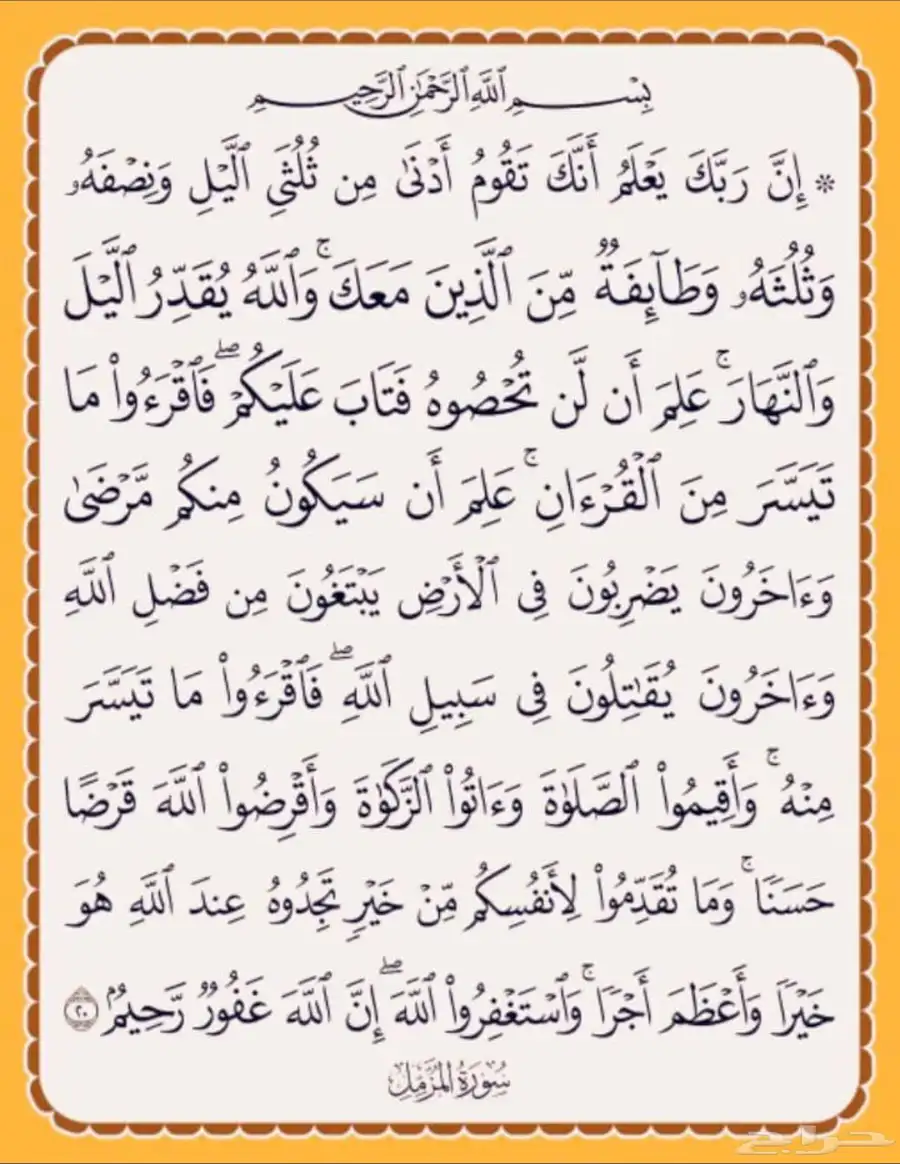 بِسْمِ ٱللَّهِ ٱلرَّحْمَٰنِ ٱلرَّحِيمِ
۞ إِنَّ رَبَّكَ يَعْلَمُ أَنَّكَ تَقُومُ أَدْنَىٰ مِن ثُلُثَيِ ٱلَّيْلِ وَنِصْفَهُۥ
وَثُلُثَهُۥ وَطَآئِفَةٌ مِّنَ ٱلَّذِينَ مَعَكَ ۚ وَٱللَّهُ يُقَدِّرُ ٱلَّيْلَ
وَٱلنَّهَارَ ۚ عَلِمَ أَن لَّن تُحْصُوهُ فَتَابَ عَلَيْكُمْ ۖ فَٱقْرَءُوا۟ مَا
تَيَسَّرَ مِنَ ٱلْقُرْءَانِ ۚ عَلِمَ أَن سَيَكُونُ مِنكُم مَّرْضَىٰ
وَءَاخَرُونَ يَضْرِبُونَ فِى ٱلْأَرْضِ يَبْتَغُونَ مِن فَضْلِ ٱللَّهِ
وَءَاخَرُونَ يُقَٰتِلُونَ فِى سَبِيلِ ٱللَّهِ ۖ فَٱقْرَءُوا۟ مَا تَيَسَّرَ
مِنْهُ ۚ وَأَقِيمُوا۟ ٱلصَّلَوٰةَ وَءَاتُوا۟ ٱلزَّكَوٰةَ وَأَقْرِضُوا۟ ٱللَّهَ قَرْضًا
حَسَنًا ۚ وَمَا تُقَدِّمُوا۟ لِأَنفُسِكُم مِّنْ خَيْرٍ تَجِدُوهُ عِندَ ٱللَّهِ هُوَ
خَيْرًا وَأَعْظَمَ أَجْرًا ۚ وَٱسْتَغْفِرُوا۟ ٱللَّهَ ۖ إِنَّ ٱللَّهَ غَفُورٌ رَّحِيمٌۢ ٢٠
سُورَةُ المُزَّمِّلِ
حراج